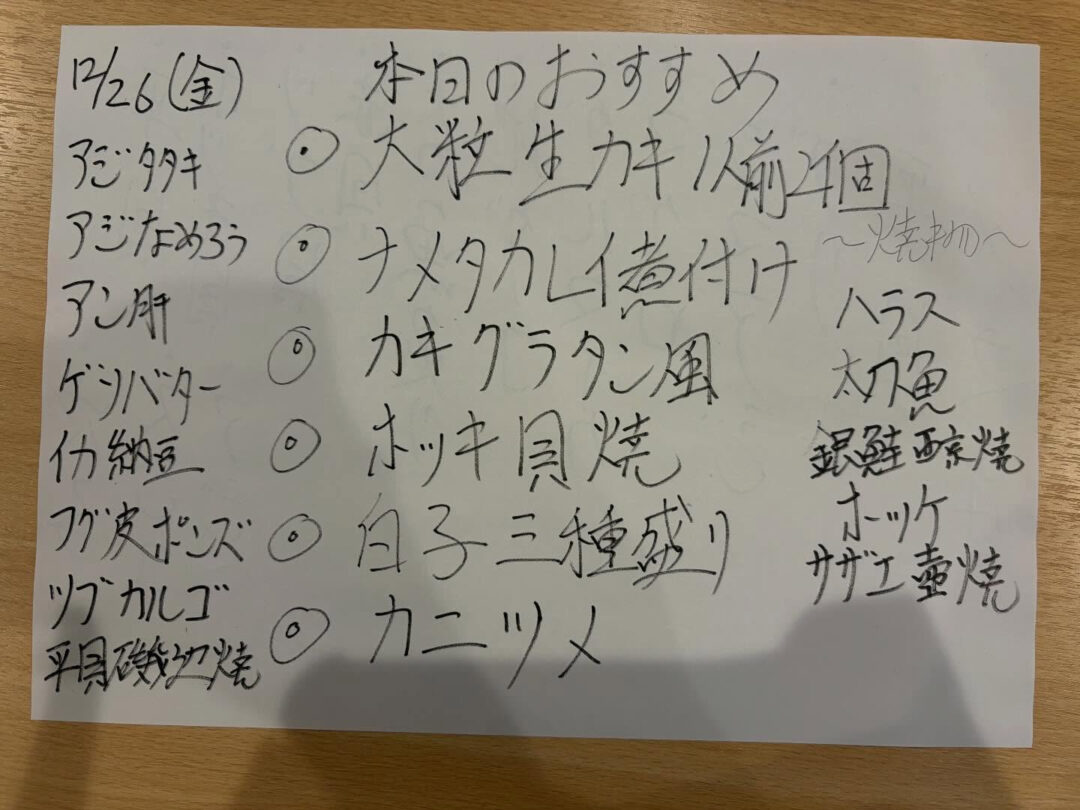 12/26(金)
アジタタキ
アジなめろう
アン肝
ゲソバター
イカ納豆
フグ皮ポンズ
ツブカルゴ
平貝磯辺焼
本日のおすすめ
◎ 大粒生カキ 1人前2個
◎ ナメタカレイ煮付け
◎ カキグラタン風
◎ ホッキ貝焼
◎ 白子三種盛り
◎ カニツメ
〜焼き物〜
ハラス
太刀魚
銀鮭西京焼
ホッケ
サザエ壺焼